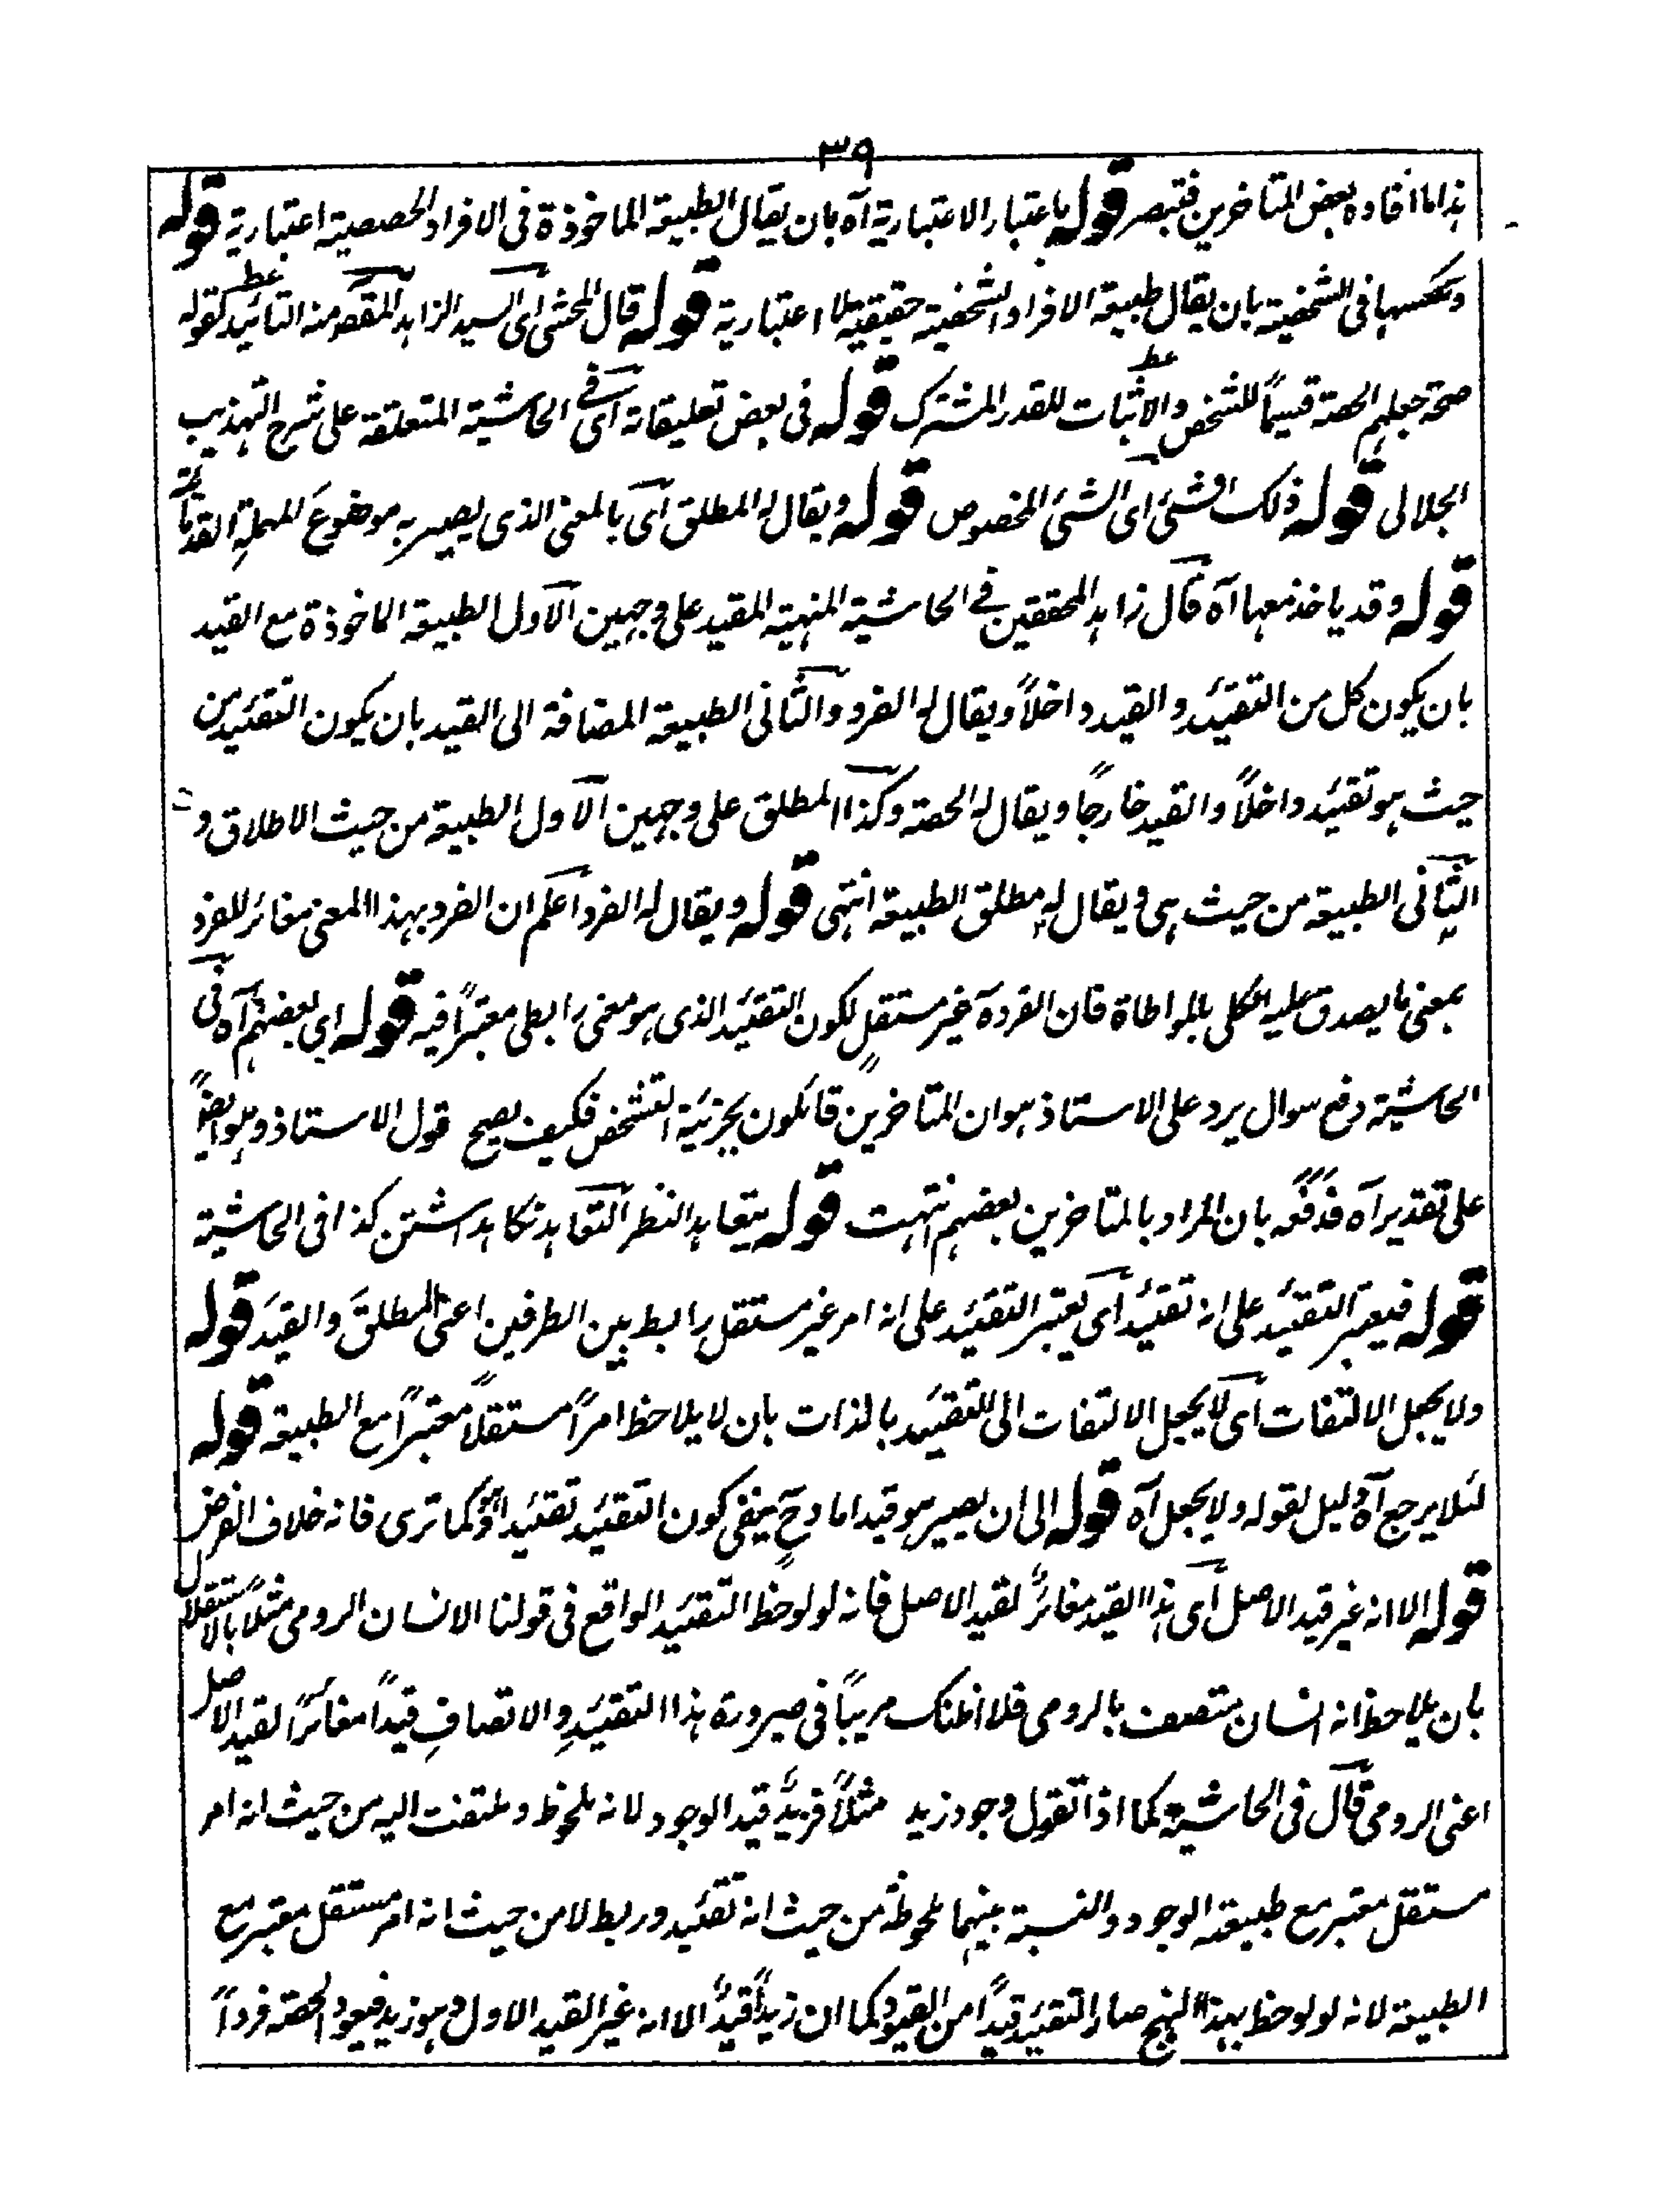 ٣٩
هذا ما افاده بعض المتاخرين فتبصر قوله باعتبار الاعتبارية آه بان يقال الطبيعة الماخوذة فى الافراد الحصصية اعتبارية قوله
وبعكسها فى الشخصية بان يقال طبيعة الافراد الشخصية حقيقية لا اعتبارية قوله قال المحشى اى السيد الزاهد المقصد منه التائيد كقوله
صحة جعلهم الحصة قسيماً للشخص والاثبات للقدر المشترك قوله فى بعض تعليقاته اى فى الحاشية المتعلقة على شرح التهذيب
الجلالى قوله ذلك الشئ اى الشئ المخصوص قوله ويقال له المطلق اى بالمعنى الذى يصير به موضوعَ المهملةِ القدمائية
قوله وقد ياخذ معها آه قال زاهد المحققين فى الحاشية المنهية المقيد على وجهين الاول الطبيعة الماخوذة مع القيد
بان يكون كل من التقئيد والقيد داخلاً ويقال له الفرد والثانى الطبيعة المضافة الى القيد بان يكون التقئيد من
حيث هو تقئيد داخلاً والقيد خارجاً ويقال له الحصة وكذا المطلق على وجهين الاول الطبيعة من حيث الاطلاق و
الثانى الطبيعة من حيث هى ويقال له مطلق الطبيعة انتهى قوله ويقال له الفرد اعلم ان الفرد بهذا المعنى مغائر للفرد
بمعنى ما يصدق عليه الكلى بالمواطاة فان الفرد ح غير مستقلٍ لكون التقئيد الذى هو معنى رابطى معتبراً فيه قوله اى بعضهم آه فى
الحاشية دفع سوال يرد على الاستاذ هو ان المتاخرين قائلون بجزئية التشخص فكيف يصح قول الاستاذ وهو ايضاً
على تقدير آه فدفعه بان المراد بالمتاخرين بعضهم انتهت قوله يتعاهد النظر التعاهد نكاهداشتن كذا فى الحاشية
قوله فيعتبر التقئيد على انه تقئيد اى يعتبر التقئيد على انه امر غير مستقل رابط بين الطرفين اعنى المطلقَ والقيدَ قوله
ولا يجعل الالتفات اى لا يجعل الالتفات الى التقئيد بالذات بان لا يلاحظ امراً مستقلاً معتبراً مع الطبيعة قوله
لئلا يرجع آه دليل لقوله ولا يجعل آه قوله الى ان يصير هو قيداً ما وحٍ ينفى كون التقئيد تقئيداً وهو كما ترى فانه خلاف الفرض
قوله الا انه غير قيد الاصل اى هذا القيد مغائرٌ لقيد الاصل فانه لو لوحظ التقئيد الواقع فى قولنا الانسان الرومى مثلاً بالاستقلال
بان يلاحظ انه انسان متصف بالرومى فلا اظنك مريباً فى صيرورة هذا التقئيدِ والاتصافِ قيداً مغائراً لقيد الاصل
اعنى الرومى قال فى الحاشية كما اذا تقول وجود زيد مثلاً فزيدٌ قيد الوجود لانه ملحوظ وملتفت اليه من حيث انه امر
مستقل معتبر مع طبيعة الوجود والنسبة بينهما ملحوظة من حيث انه تقئيد وربط لا من حيث انه امر مستقل معتبر مع
الطبيعة لانه لو لوحظ بهذا النهج صار التقئيد قيداً من القيود كما ان زيداً قيدٌ الا انه غير القيد الاول وهو زيد فيعود الحصة فرداً